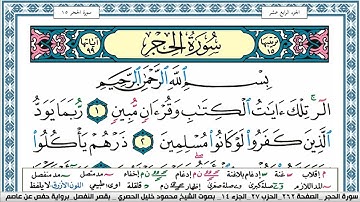 الجزء الرابع عشر
سورة الحجر ١٥
ترتيبها ١٥ سُورَةُ الحِجْرِ آياتها ٩٩
بِسْمِ ٱللَّهِ ٱلرَّحْمَٰنِ ٱلرَّحِيمِ
الٓر ۚ تِلْكَ ءَايَٰتُ ٱلْكِتَٰبِ وَقُرْءَانٍ مُّبِينٍ ١ رُّبَمَا يَوَدُّ
ٱلَّذِينَ كَفَرُوا۟ لَوْ كَانُوا۟ مُسْلِمِينَ ٢ ذَرْهُمْ يَأْكُلُوا۟
سورة الحجر صفحة ٢٦٢ الحزب ٢٧ الجزء ١٤ بصوت الشيخ محمود خليل الحصري بقصر المنفصل برواية حفص عن عاصم